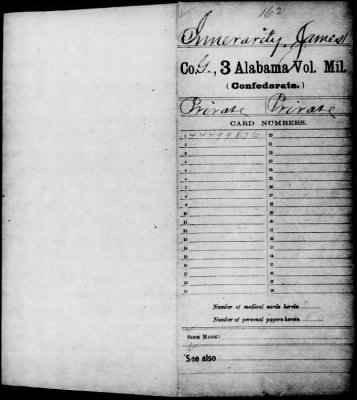 162
Innerarity, James
Co. G., 3 Alabama Vol. Mil.
(Confederate.)
Private Private
CARD NUMBERS.
1 44499826 20
2 21
3 22
4 23
5 24
6 25
7 26
8 27
9 28
10 29
11 30
12 31
13 32
14 33
15 34
16 35
17 36
18 37
19 38
Number of medical cards herein
Number of personal papers herein
BOOK MARK:
See also